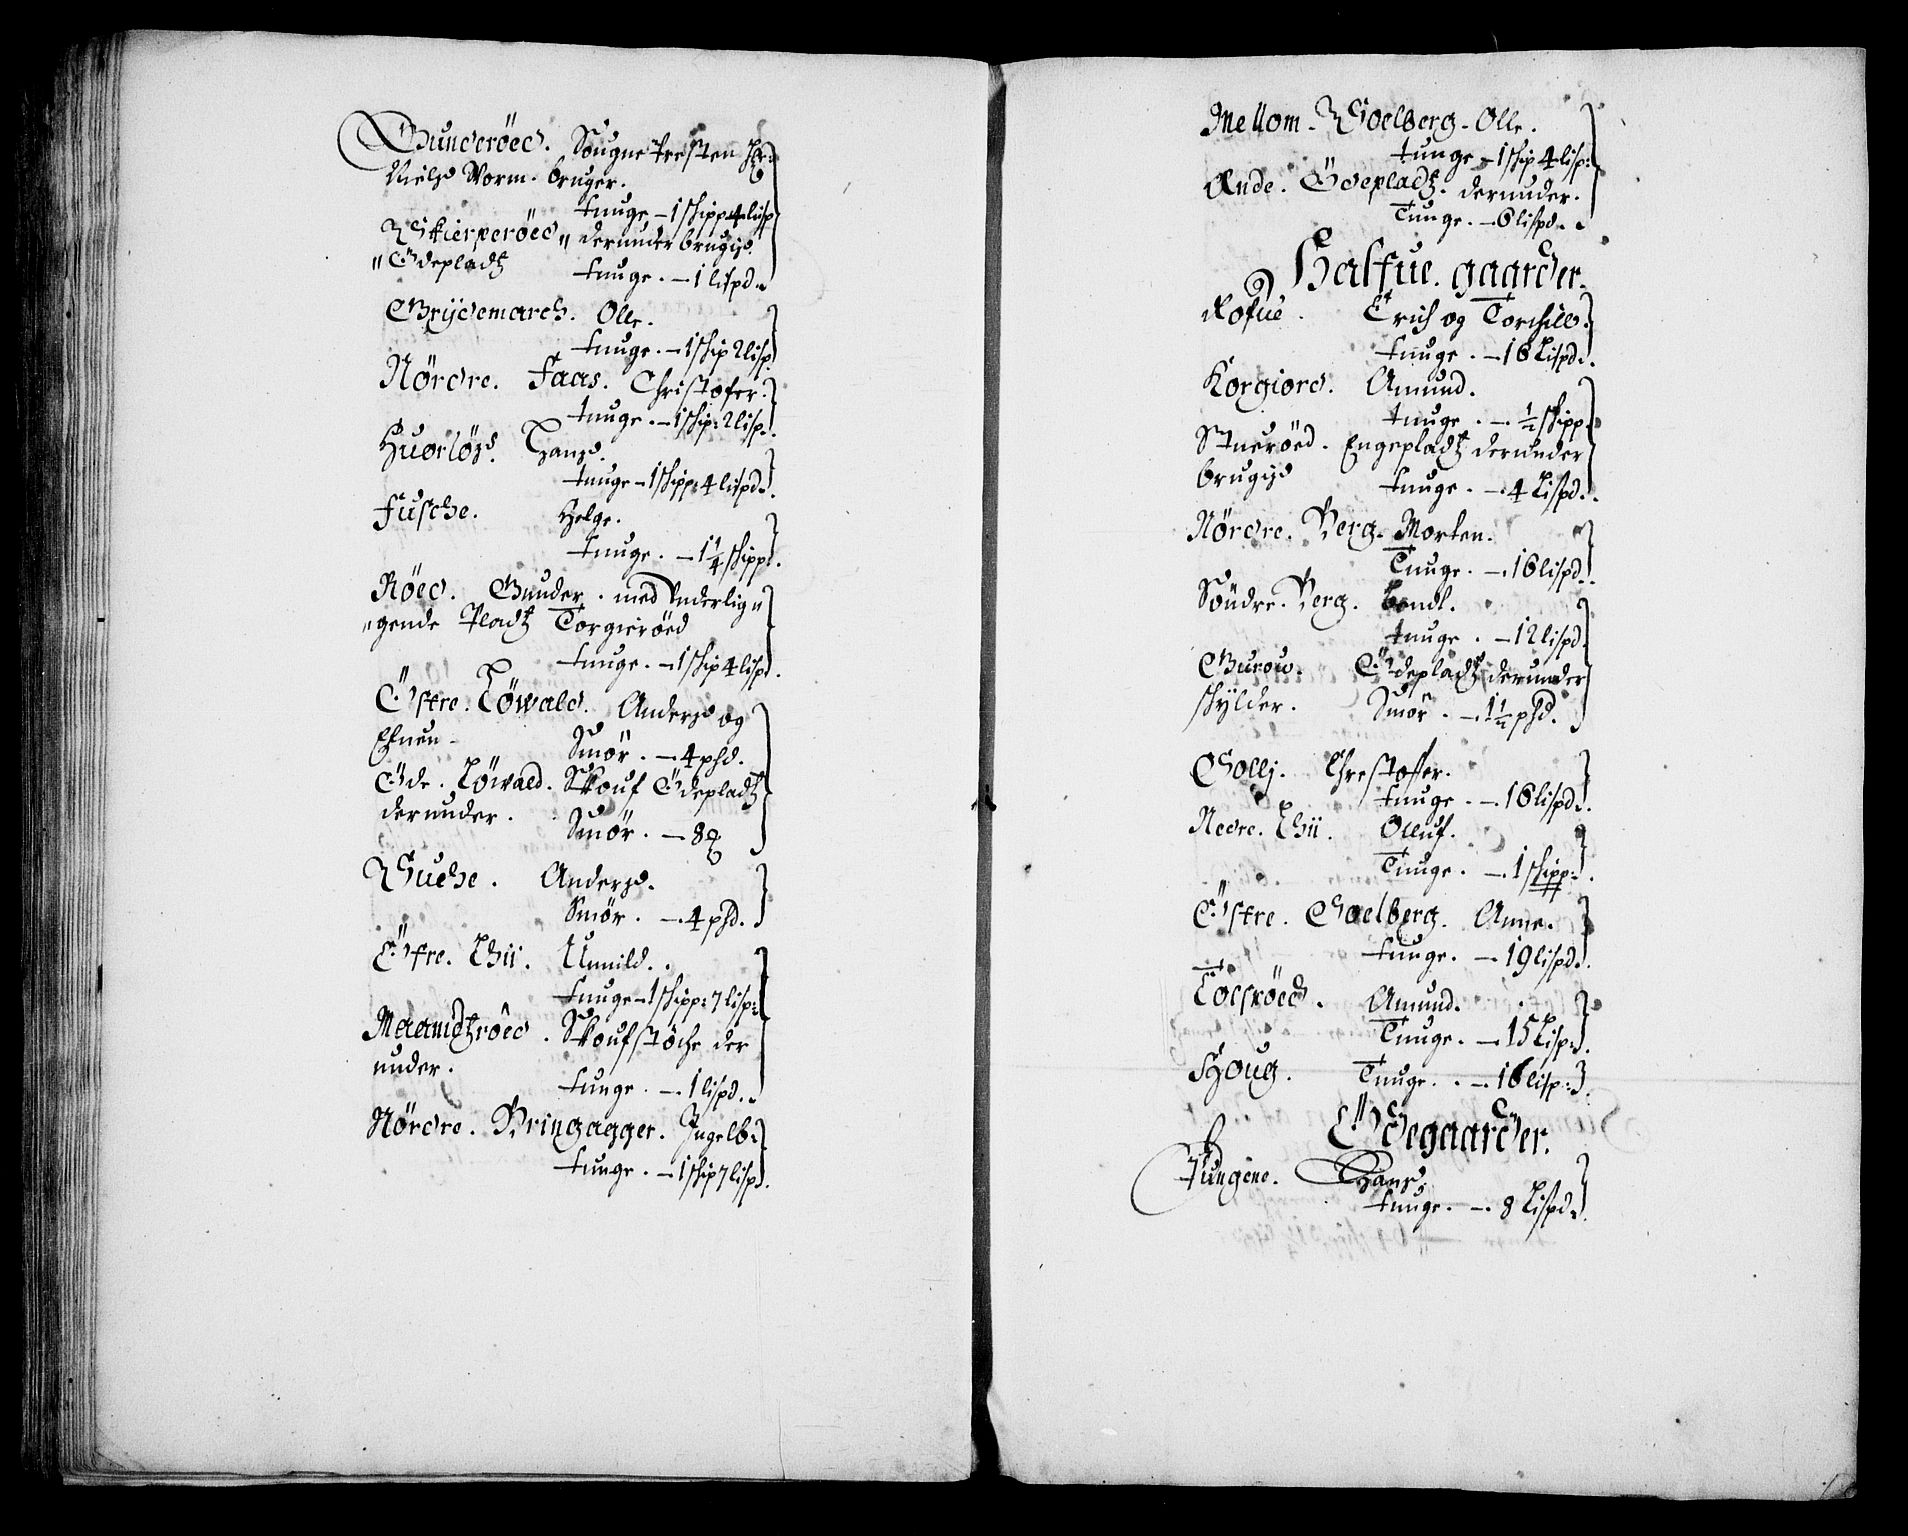 Gunderöed. Sougne Presten Hr:
Niels Worm. bruger.
tunge – 1 schipp: 4 lisp
Skierperöed derunder brugis.
Ödepladtz tunge. – 1 lispd.
Grydemarch. Olle.
tunge. – 1 schip 2 lisp:
Nördre. Faas. Christofer.
tunge. – 1 schip: 2 lisp.
Huorlös. Hans.
tunge – 1 schipp: 4 lispd.
Fusche. Helge.
tunge. – 1 1/4 schipp.
Röed. Gunder. med Underlig
gende Pladtz Torgieröed
tunge. – 1 schip 4 lisp.
Östre. Löwald. Anders og
Efuen Smör. – 4 pfd.
Öde. Löwald. Skouf Ödepladtz
derunder. Smör. – 8
Anders.
Smör. – 4 pfd.
Östre. Thii. Unnild.
tunge – 1 schipp: 7 lisp:
Maamdtzröed. Skoufstöche der
under. tunge. – 1 lispd.
Nördre. Bringagger. Ingelb:
tunge. – 1 schip 7 lisp.
Mellom. Soelberg. Olle.
tunge – 1 schip 4 lisp:
Ande. Ödepladtz. derunder.
Tunge. – 6 lispd.
Halfue. gaarder.
Rofue. Erich og Torchild.
tunge. – 16 Lispd.
Korgiord. Amund.
tunge. – 1/2 schipp.
Stueröed. Engepladtz derunder
brugis tunge. – 4 Lispd.
Nördre. Berg. Morten.
Tunge. – 16 lispd.
Söndre. Berg. Bendt.
tunge. – 12 lispd.
Ödepladtz derunder
skylder. Smör. – 1 1/2 pfd.
Solli. Christoffer.
tunge. – 16 lispd.
Nedre. Thii. Olluf.
Tunge. – 1 schipp:
Östre. Soelberg. Anne.
tunge. – 19 lispd.
Tolfröed. Amund.
Tunge. – 15 Lisp:
Houg. Tunge. – 16 lisp:
Ödegaarder.
Pungene. Hans
tunge. – 8 Lispd.